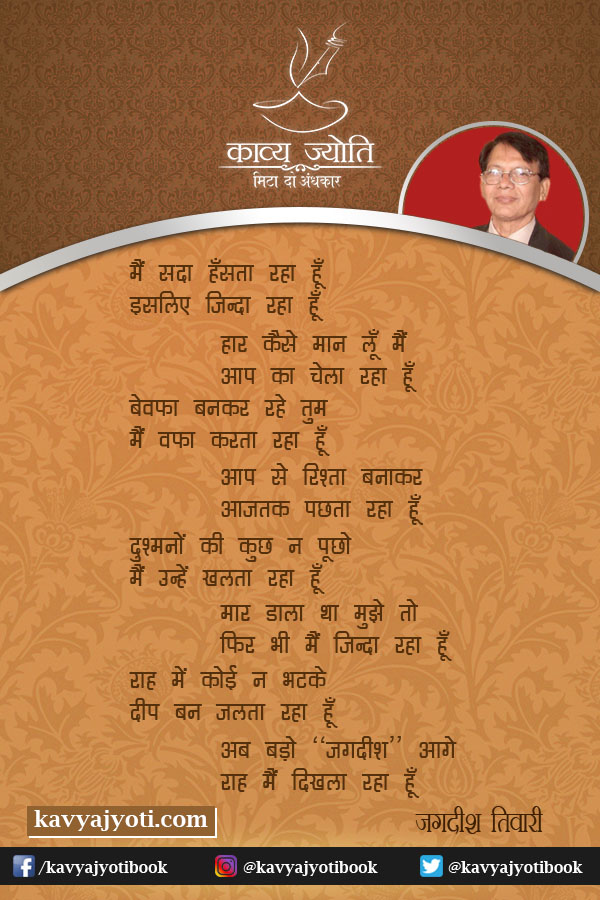 काव्य ज्योति
मिटा दो अंधकार
मैं सदा हँसता रहा हूँ
इसलिए जिन्दा रहा हूँ
हार कैसे मान लूँ मैं
आप का चेला रहा हूँ
बेवफा बनकर रहे तुम
मैं वफा करता रहा हूँ
आप से रिश्ता बनाकर
आजतक पछता रहा हूँ
दुश्मनों की कुछ न पूछो
मैं उन्हें खलता रहा हूँ
मार डाला था मुझे तो
फिर भी मैं जिन्दा रहा हूँ
राह में कोई न भटके
दीप बन जलता रहा हूँ
अब बड़ो ‘‘जगदीश’’ आगे
राह मैं दिखला रहा हूँ
जगदीश तिवारी
kavyajyoti.com
/kavyajyotibook @kavyajyotibook @kavyajyotibook